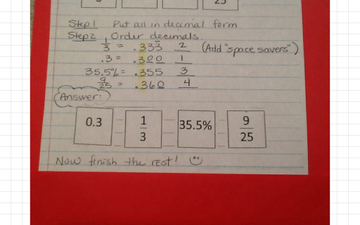 25
Step 1 Put all in decimal form
Step 2 Order decimals.
1/3 = .333 2 (Add "space savers")
.3 = .300 1
35.5% = .355 3
9/25 = .360 4
Answer:
0.3 1/3 35.5% 9/25
Now finish the rest! ☺